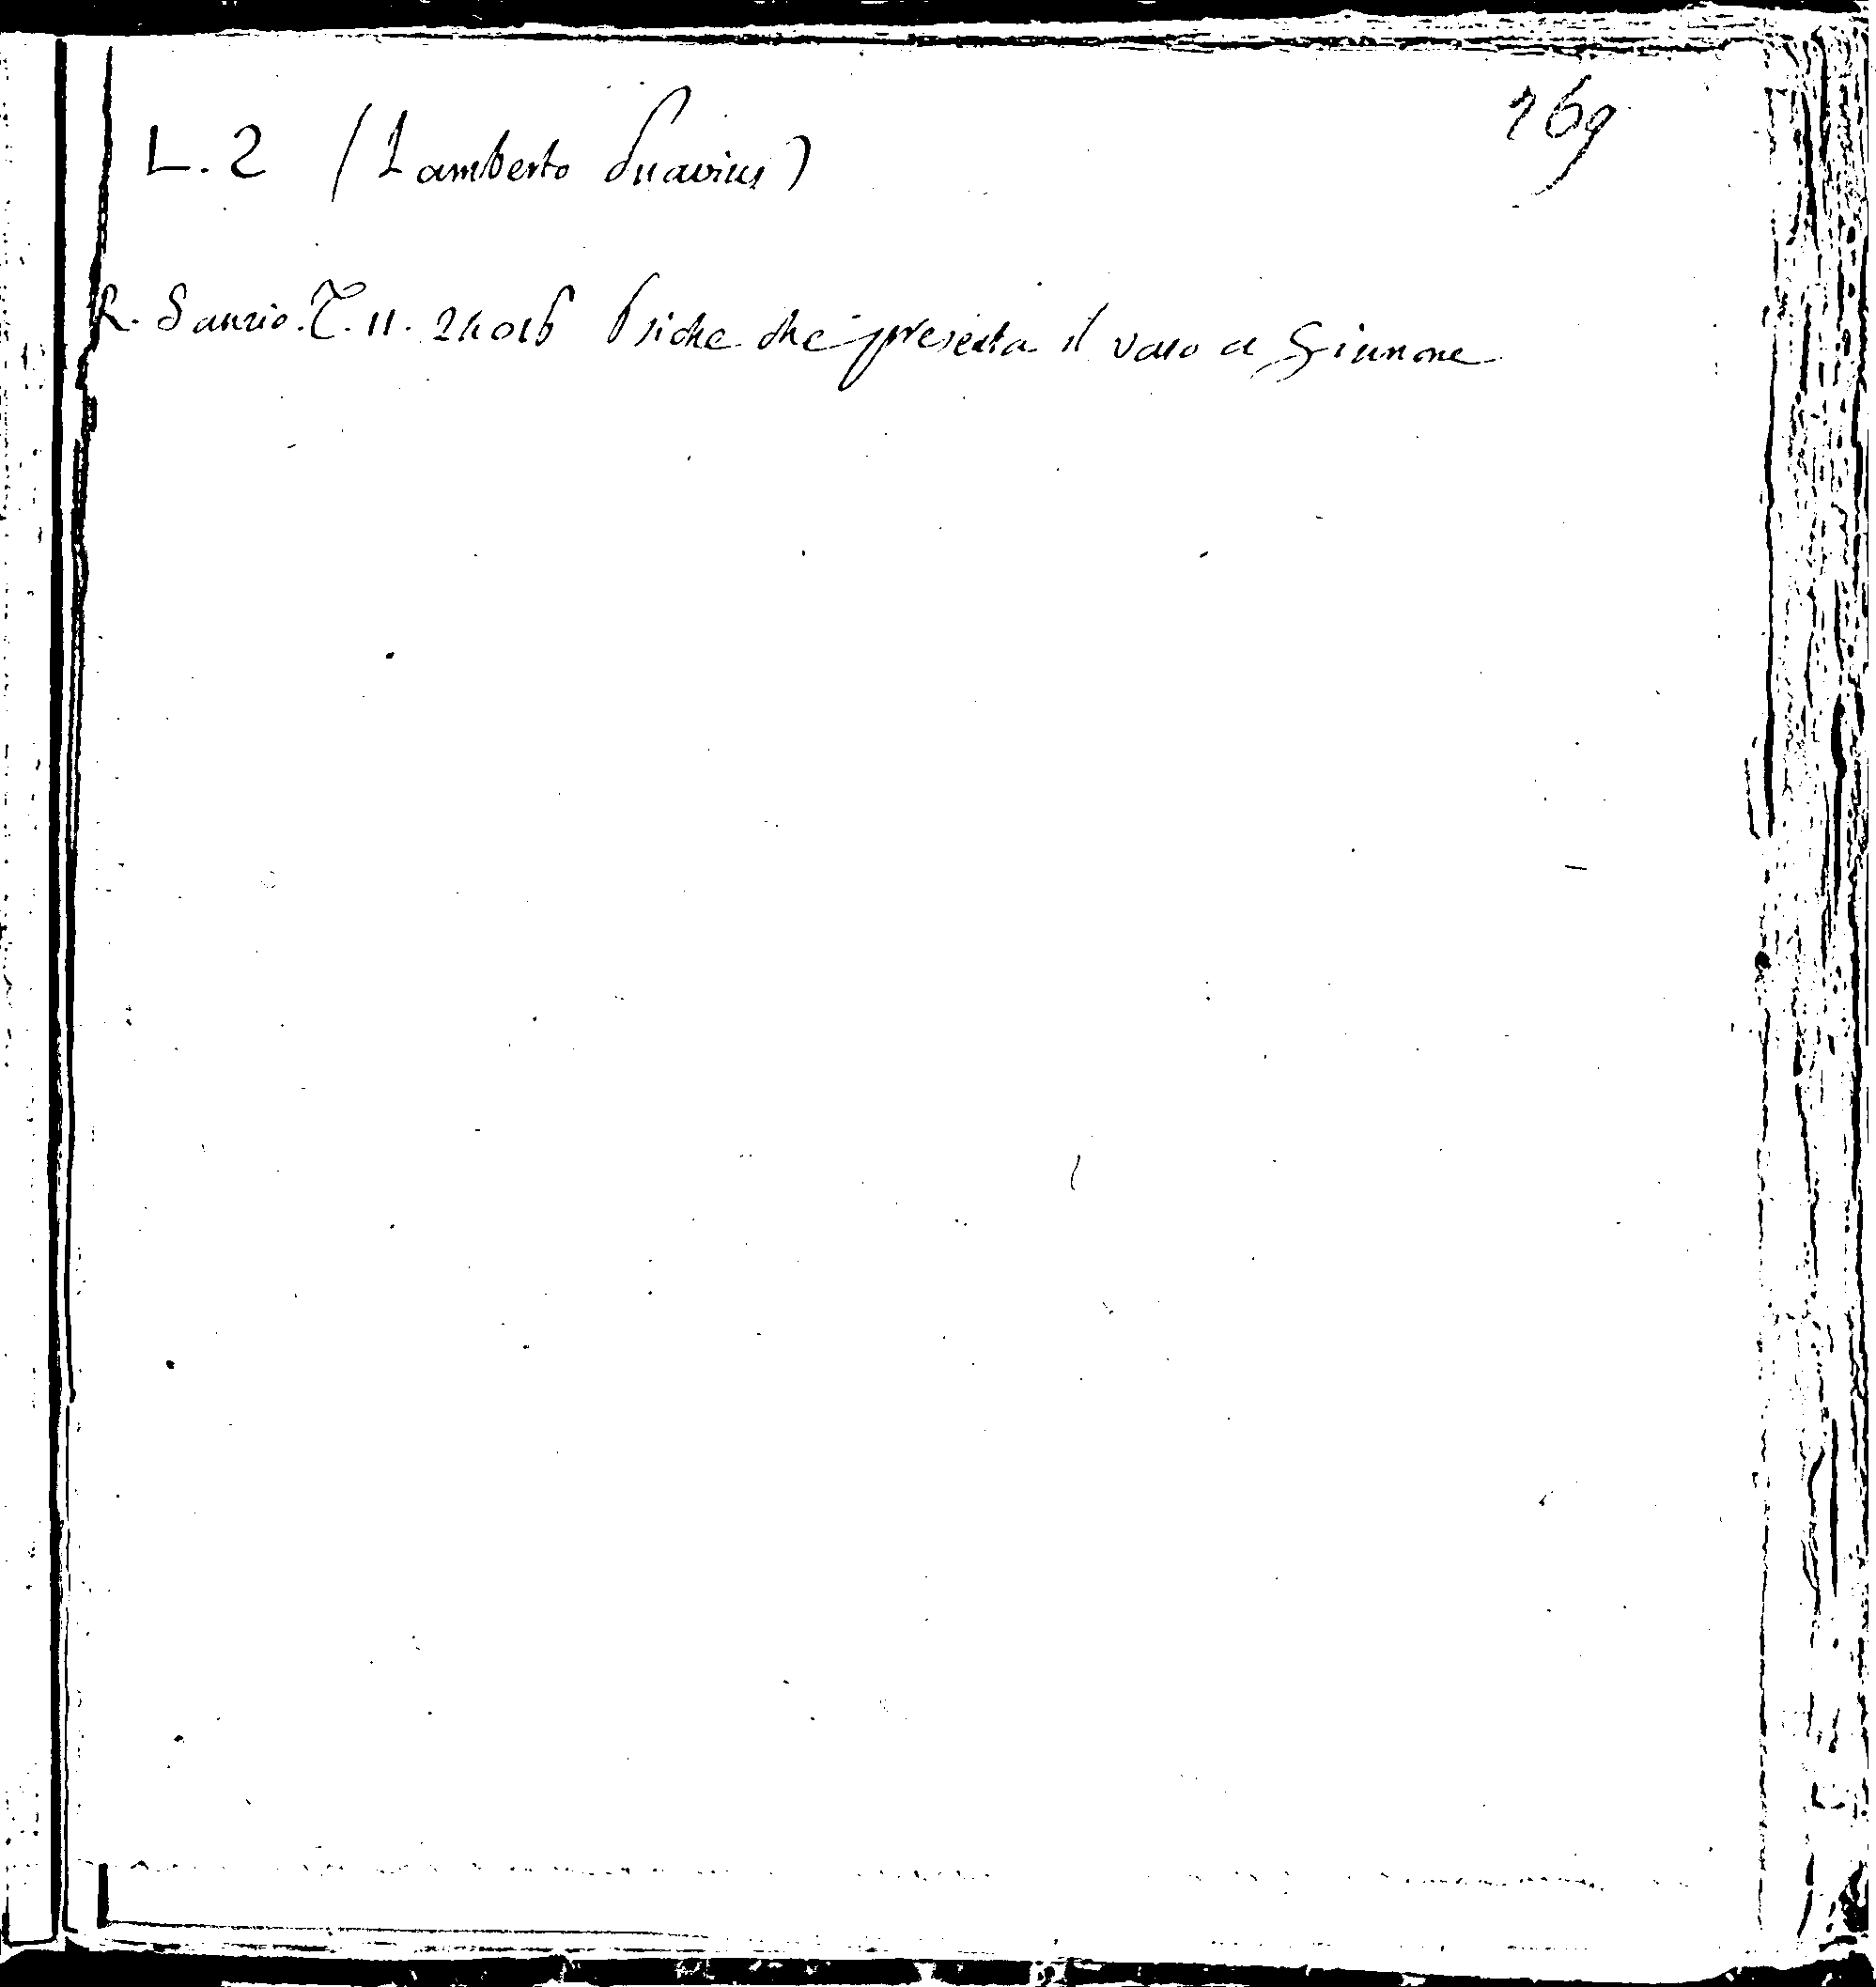 169
L. 2 (Lamberto Suavius)
R. Sanzio. T. 11. 24016 Psiche che presenta il vaso a Giunone